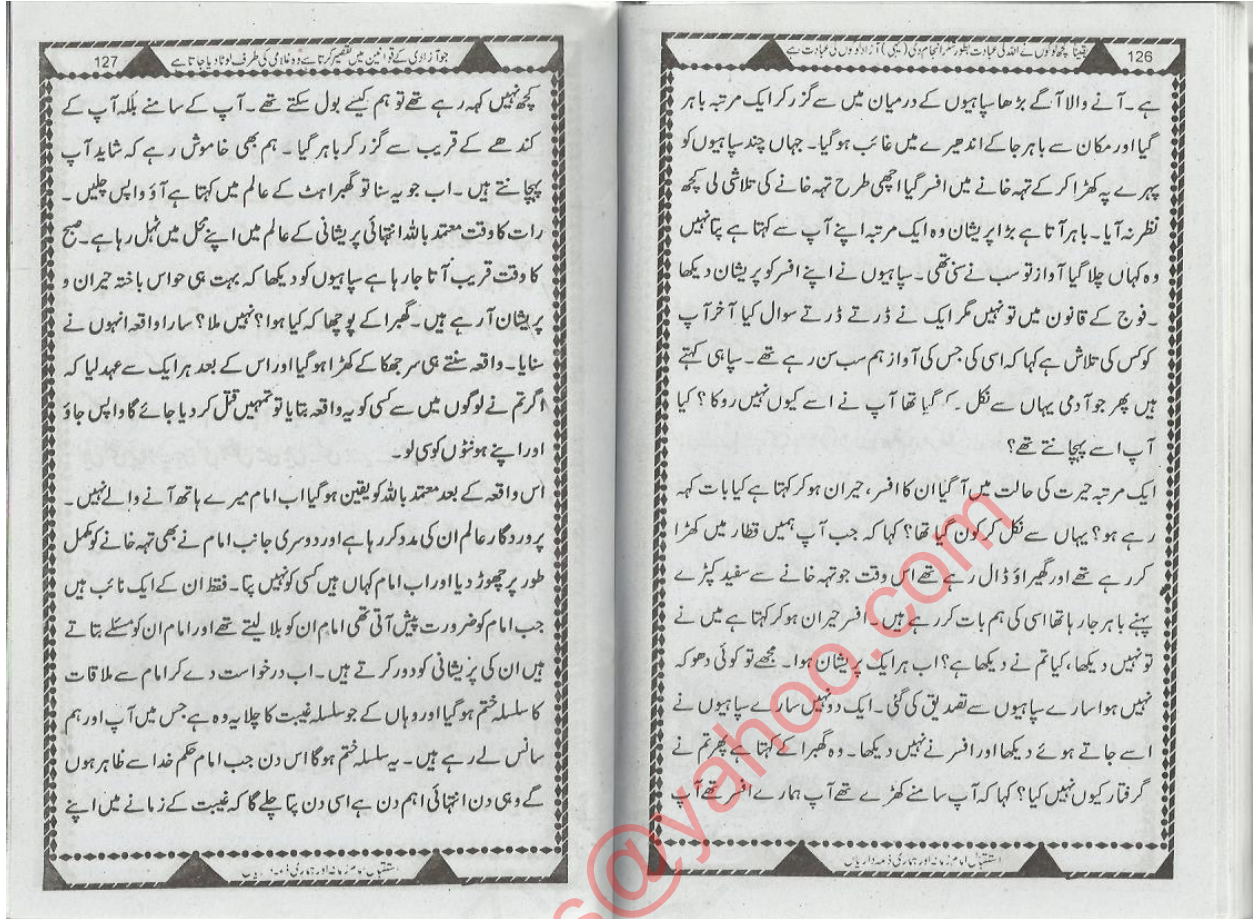 126
یقیناً کچھ لوگوں نے اللہ کی عبادت بطور شکر انجام دی (یہی) آزاد لوگوں کی عبادت ہے
ہے۔آنے والا آگے بڑھا سپاہیوں کے درمیان میں سے گزر کر ایک مرتبہ باہر
گیا اور مکان سے باہر جا کے اندھیرے میں غائب ہو گیا۔ جہاں چند سپاہیوں کو
پہرے پہ کھڑا کر کے تہہ خانے میں افسر گیا اچھی طرح تہہ خانے کی تلاشی لی کچھ
نظر نہ آیا۔ باہر آتا ہے بڑا پریشان وہ ایک مرتبہ اپنے آپ سے کہتا ہے پتا نہیں
وہ کہاں چلا گیا آواز تو سب نے سنی تھی۔ سپاہیوں نے اپنے افسر کو پریشان دیکھا
۔فوج کے قانون میں تو نہیں مگر ایک نے ڈرتے ڈرتے سوال کیا آخر آپ
کو کس کی تلاش ہے کہا کہ اسی کی جس کی آواز ہم سب سن رہے تھے۔ سپاہی کہتے
ہیں پھر جو آدمی یہاں سے نکل کر گیا تھا آپ نے اسے کیوں نہیں روکا؟ کیا
آپ اسے پہچانتے تھے؟
ایک مرتبہ حیرت کی حالت میں آ گیا ان کا افسر، حیران ہو کر کہتا ہے کیا بات کہہ
رہے ہو؟ یہاں سے نکل کر کون گیا تھا؟ کہا کہ جب آپ ہمیں قطار میں کھڑا
کر رہے تھے اور گھیراؤ ڈال رہے تھے اس وقت جو تہہ خانے سے سفید کپڑے
پہنے باہر جا رہا تھا اسی کی ہم بات کر رہے ہیں۔ افسر حیران ہو کر کہتا ہے میں نے
تو نہیں دیکھا، کیا تم نے دیکھا ہے؟ اب ہر ایک پریشان ہوا۔ مجھے تو کوئی دھوکہ
نہیں ہوا سارے سپاہیوں سے تصدیق کی گئی۔ ایک دو نہیں سارے سپاہیوں نے
اسے جاتے ہوئے دیکھا اور افسر نے نہیں دیکھا۔ وہ گھبرا کے کہتا ہے پھر تم نے
گرفتار کیوں نہیں کیا؟ کہا کہ آپ سامنے کھڑے تھے آپ ہمارے افسر تھے آپ
استقبال امام زمانہ اور ہماری ذمہ داریاں
127
جو آزادی کے قوانین میں تقصیر کرتا ہے وہ غلامی کی طرف لوٹا دیا جاتا ہے
کچھ نہیں کہہ رہے تھے تو ہم کیسے بول سکتے تھے۔ آپ کے سامنے بلکہ آپ کے
کندھے کے قریب سے گزر کر باہر گیا۔ ہم بھی خاموش رہے کہ شاید آپ
پہچانتے ہیں۔ اب جو یہ سنا تو گھبراہٹ کے عالم میں کہتا ہے آؤ واپس چلیں۔
رات کا وقت معتمد باللہ انتہائی پریشانی کے عالم میں اپنے محل میں ٹہل رہا ہے۔ صبح
کا وقت قریب آتا جا رہا ہے سپاہیوں کو دیکھا کہ بہت ہی حواس باختہ حیران و
پریشان آ رہے ہیں۔ گھبرا کے پوچھا کہ کیا ہوا؟ نہیں ملا؟ سارا واقعہ انہوں نے
سنایا۔ واقعہ سنتے ہی سر جھکا کے کھڑا ہو گیا اور اس کے بعد ہر ایک سے عہد لیا کہ
اگر تم نے لوگوں میں سے کسی کو یہ واقعہ بتایا تو تمہیں قتل کر دیا جائے گا واپس جاؤ
اور اپنے ہونٹوں کو سی لو۔
اس واقعہ کے بعد معتمد باللہ کو یقین ہو گیا اب امام میرے ہاتھ آنے والے نہیں۔
پروردگار عالم ان کی مدد کر رہا ہے اور دوسری جانب امام نے بھی تہہ خانے کو مکمل
طور پر چھوڑ دیا اور اب امام کہاں ہیں کسی کو نہیں پتا۔ فقط ان کے ایک نائب ہیں
جب امام کو ضرورت پیش آتی تھی امام ان کو بلا لیتے تھے اور امام ان کو مسئلے بتاتے
ہیں ان کی پریشانی کو دور کرتے ہیں۔ اب درخواست دے کر امام سے ملاقات
کا سلسلہ ختم ہو گیا اور وہاں کے جو سلسلہ غیبت کا چلا یہ وہ ہے جس میں آپ اور ہم
سانس لے رہے ہیں۔ یہ سلسلہ ختم ہو گا اس دن جب امام حکم خدا سے ظاہر ہوں
گے وہی دن انتہائی اہم دن ہے اسی دن پتا چلے گا کہ غیبت کے زمانے میں اپنے
استقبال امام زمانہ اور ہماری ذمہ داریاں
s@yahoo.com